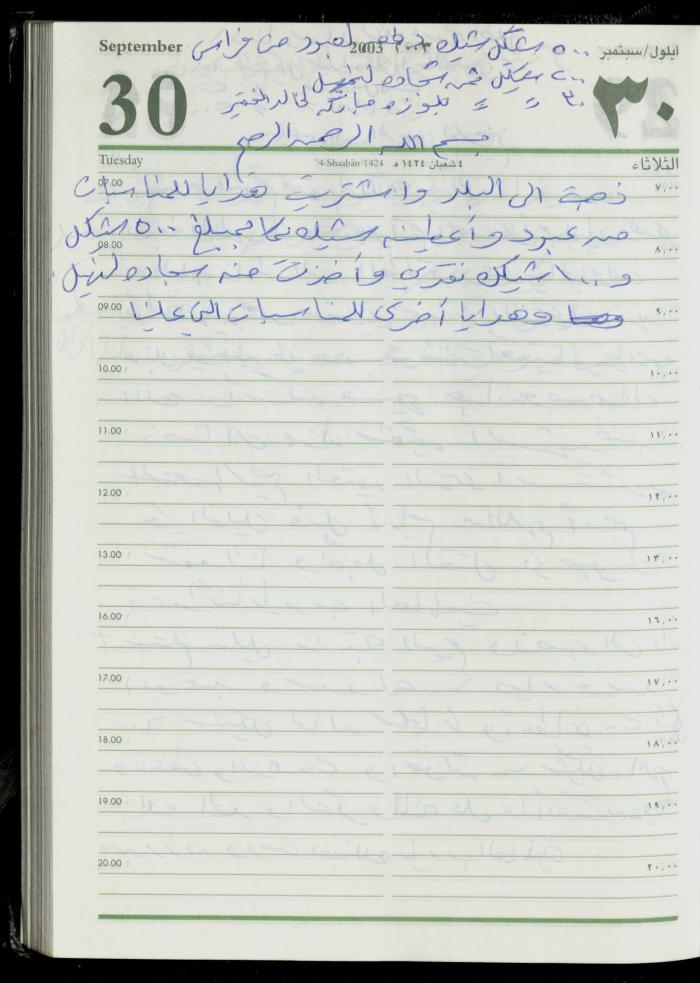 ٥٠٠ شيكل شيك دفع لعبود من فراس
September 2003 ٢٠٠٣ أيلول/سبتمبر
٢٠٠ شيكل ثمن سجاده لنهيل
30 ٣٠
٣٠ = = بلوزه لخالد الفقير
بسم الله الرحمن الرحيم
Tuesday 4 Shaabān 1424 ٤ شعبان ١٤٢٤ هـ الثلاثاء
07.00 ٧,٠٠
ذهبت الى البلد واشتريت هدايا للمناسبات
من عبود وأعطيته شيك بمبلغ ٥٠٠ شيكل
08.00 ٨,٠٠
و ١٠٠ شيكل نقدي وأخذت منه سجاده لنهيل
09.00 ٩,٠٠
وهدايا أخرى للمناسبات التي علينا
10.00 ١٠,٠٠
11.00 ١١,٠٠
12.00 ١٢,٠٠
13.00 ١٣,٠٠
16.00 ١٦,٠٠
17.00 ١٧,٠٠
18.00 ١٨,٠٠
19.00 ١٩,٠٠
20.00 ٢٠,٠٠